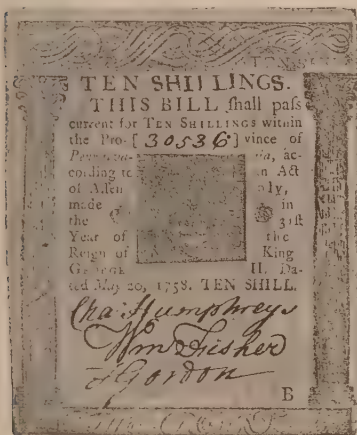 TEN SHILLINGS.
THIS BILL ſhall paſs
current for TEN SHILLINGS within
the Pro- [ 30536 ] vince of
ia, ac-
cording to an Act
of Aſſem bly,
made in
the 31ſt
Year of the
Reign of King
GEORGE II. Da-
ted May 20, 1758. TEN SHILL.
Cha: Humphreys
Wm Fisher
Gordon
B